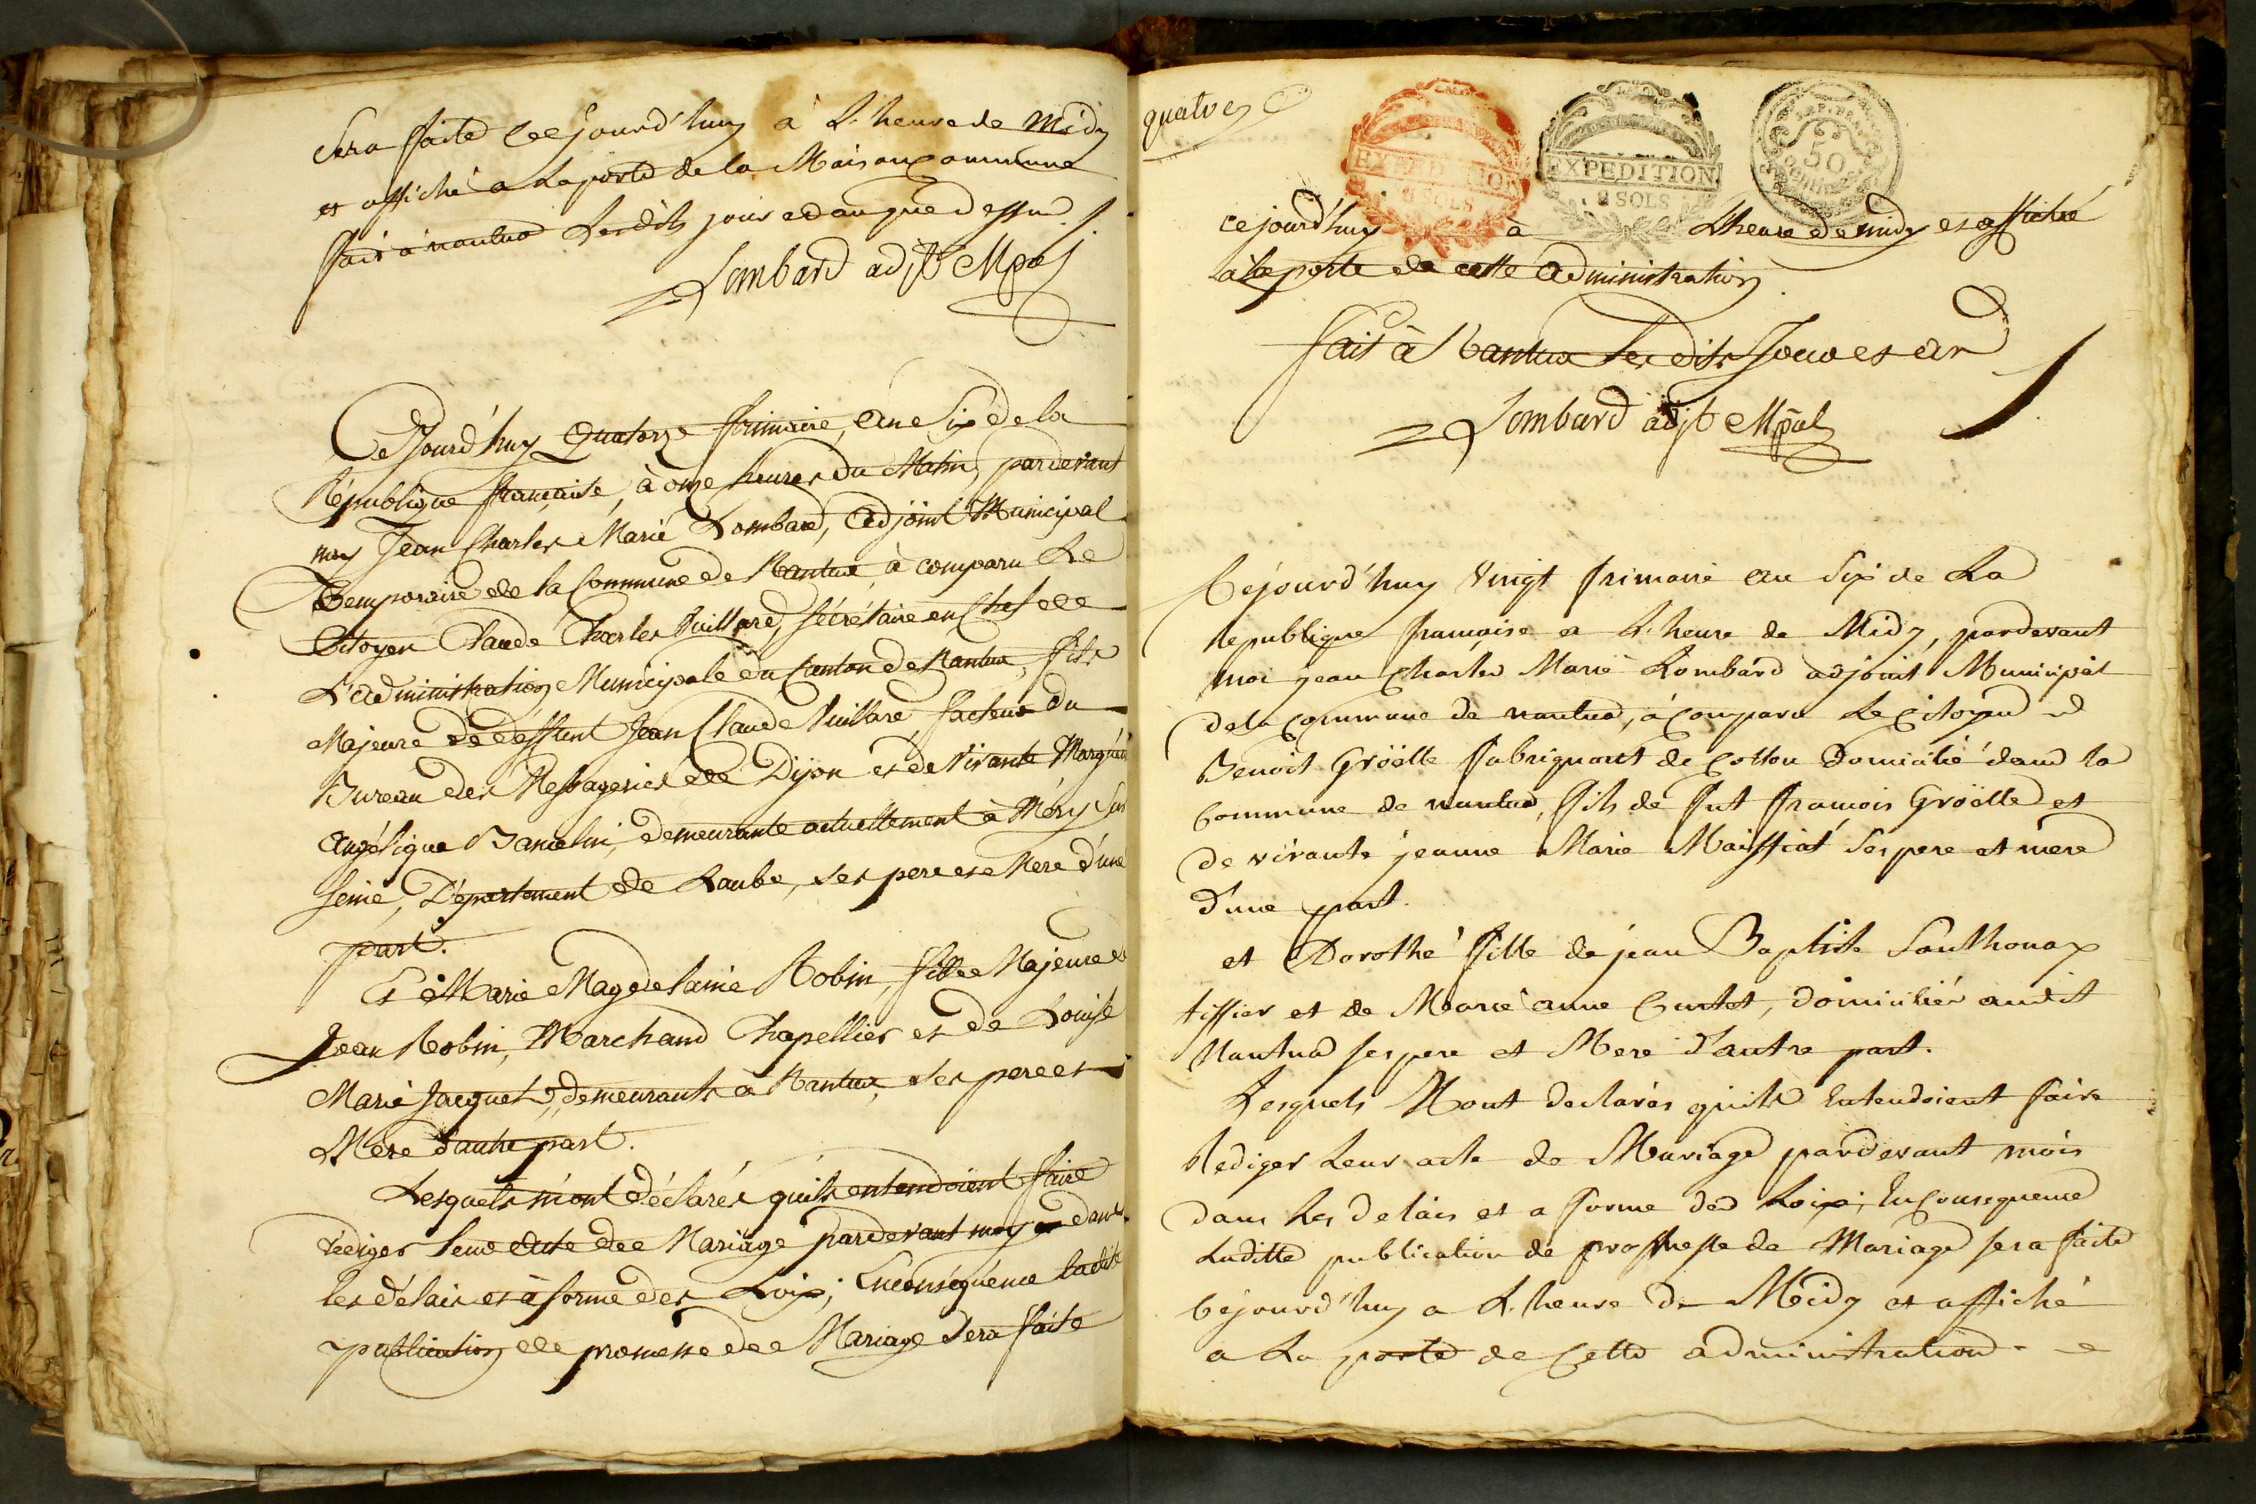 Sera faite Cejourd'huy à L'heure de Midy
et affiché a La porte de la Maison Commune
fait à nantua Lesdits jour et an que dessus /.
Lombard adjt Mpal
Cejourd'huy Quatorze frimaire, an Six de la
République française, à onze heures du Matin, pardevant
moy Jean Charles Marie Lombard, Adjoint Municipal
Temporaire de la Commune de Nantua, à comparu Le
Citoyen Claude Charles Vuillard, sécrétaire en Chef de
L'administration Municipale du Canton de Nantua, fils
Majeure de deffunt Jean Claude Vuillard facteur du
Bureau des Messageries de Dijon et de vivante Margueri
Angélique Bancelin, demeurante actuellement à Méry Sur
Seine, Département de Laube, ses pere et Mere d'une
part.
Et Marie Magdelaine Robin, fille Majeure de
Jean Robin, Marchand Chapellier et de Louise
Marie Jacquet, demeurants à Nantua, ses pere et
Mere d'autre part.
Lesquels m'ont déclarés qu'ils entendoient faire
rédiger leur acte de Mariage pardevant moy dans
les délais et à forme des Loix; Enconséquence ladite
publication de promesse de Mariage Sera faite
quatre
EXPEDITION
8 SOLS
EXPEDITION
8 SOLS
50
centimes
cejourd'huy à L'heure de midy et affiché
à la porte de cette administration
fait à Nantua les dits Jour et an
Lombard adjt Mpal
Cejourd'huy Vingt frimaire an Six de La
republique française a L'heure de Midy, pardevant
moi jean Charles Marie Lombard adjoint Municipal
de la Commune de nantua, à Comparu Le Citoyen
Benoit Gröelle fabriquant de Cotton Domicilié dans la
Commune de nantua, fils de fut françois Gröelle et
de vivante jeanne Marie Maissiat Ses pere et mere
D'une part.
et Dorothé fille de jean Baptiste Santhonax
tissier et de Marie anne Curtet, Domiciliés audit
Nantua ses pere et Mere D'autre part.
Lesquels M'ont declarés qu'ils Entendoient faire
Rediger Leur acte de Mariage pardevant mois
dans Les Delais et a forme des Loix; En Consequence
Laditte publication de promesse de Mariage sera faite
Cejourd'huy a L'heure De Midy et affiché
a La porte de Cette administration.